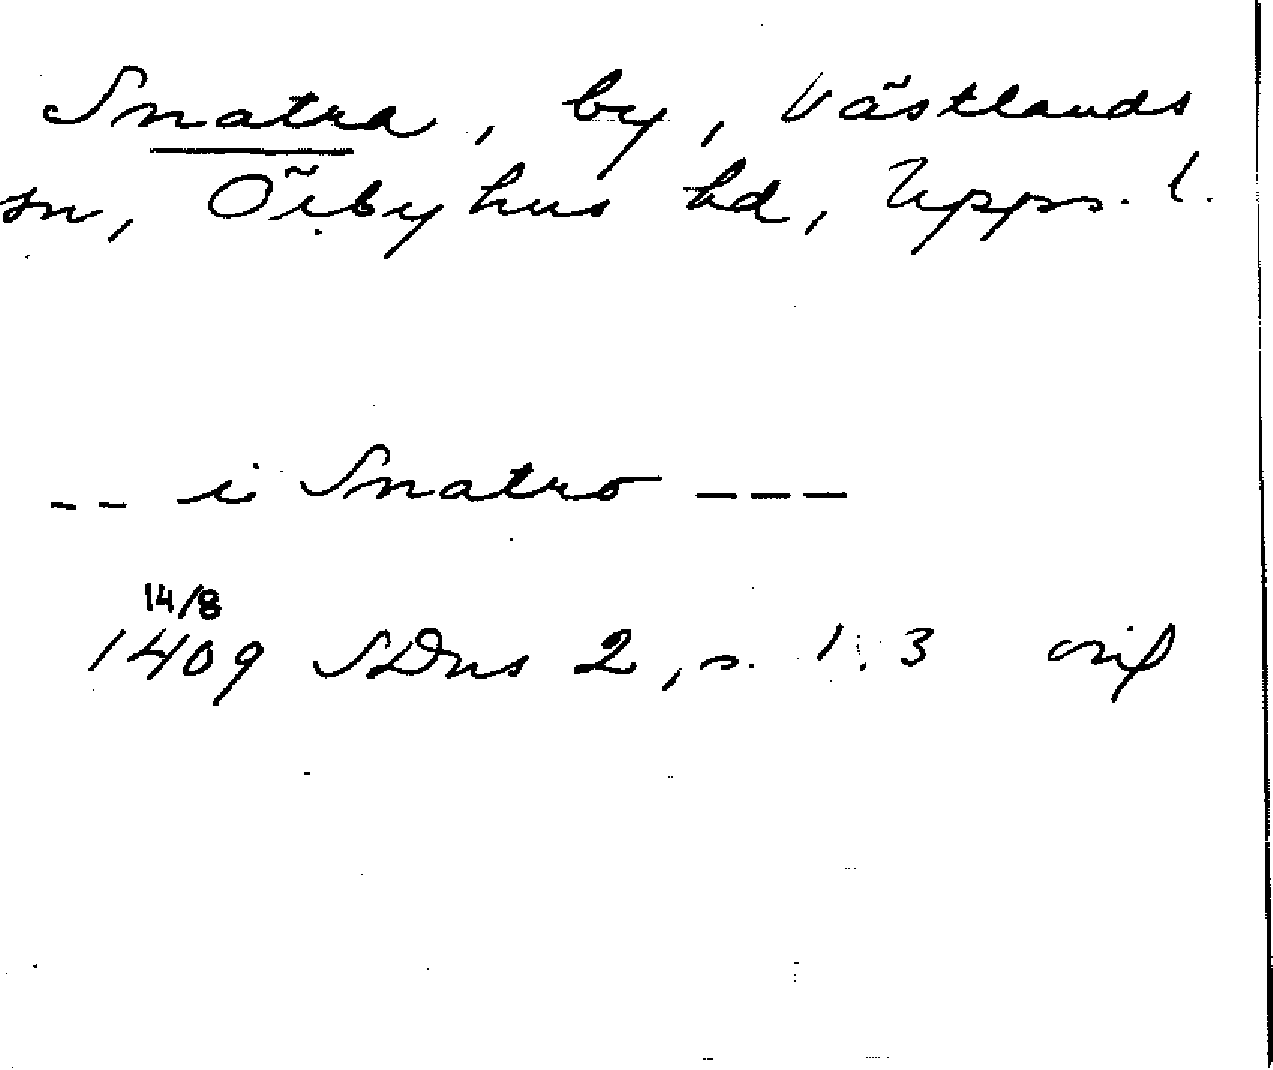 Snatra, by, Västlands
sn, Örbyhus hd, Upps. l.
-- i Snatro ---
14/8
1409 SDns 2, s. 1 . 3 orig